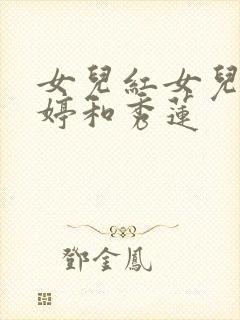 女兒紅女兒
婷和秀蓮
鄧金鳳